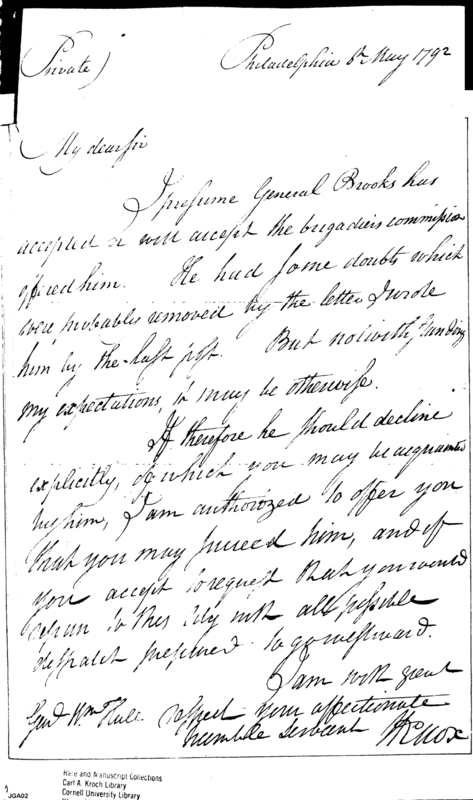 (Private)
Philadelphia 6th May 1792
My dear sir
I presume General Brooks has
accepted or will accept the brigadiers commission
offered him. He had some doubts which
were probably removed by the letter I wrote
him by the last post. But notwithstanding
my expectations, it may be otherwise.
If therefore he should decline
explicitly, of which you may be acquainted
by him, I am authorized to offer you
that you may succeed him, and if
you accept to request that you would
repair to this city with all possible
despatch prepared to go westward.
I am with great
respect your affectionate
humble servant
HKnox
Genl Wm Hull
Rare and Manuscript Collections
Carl A. Kroch Library
Cornell University Library
JGA02